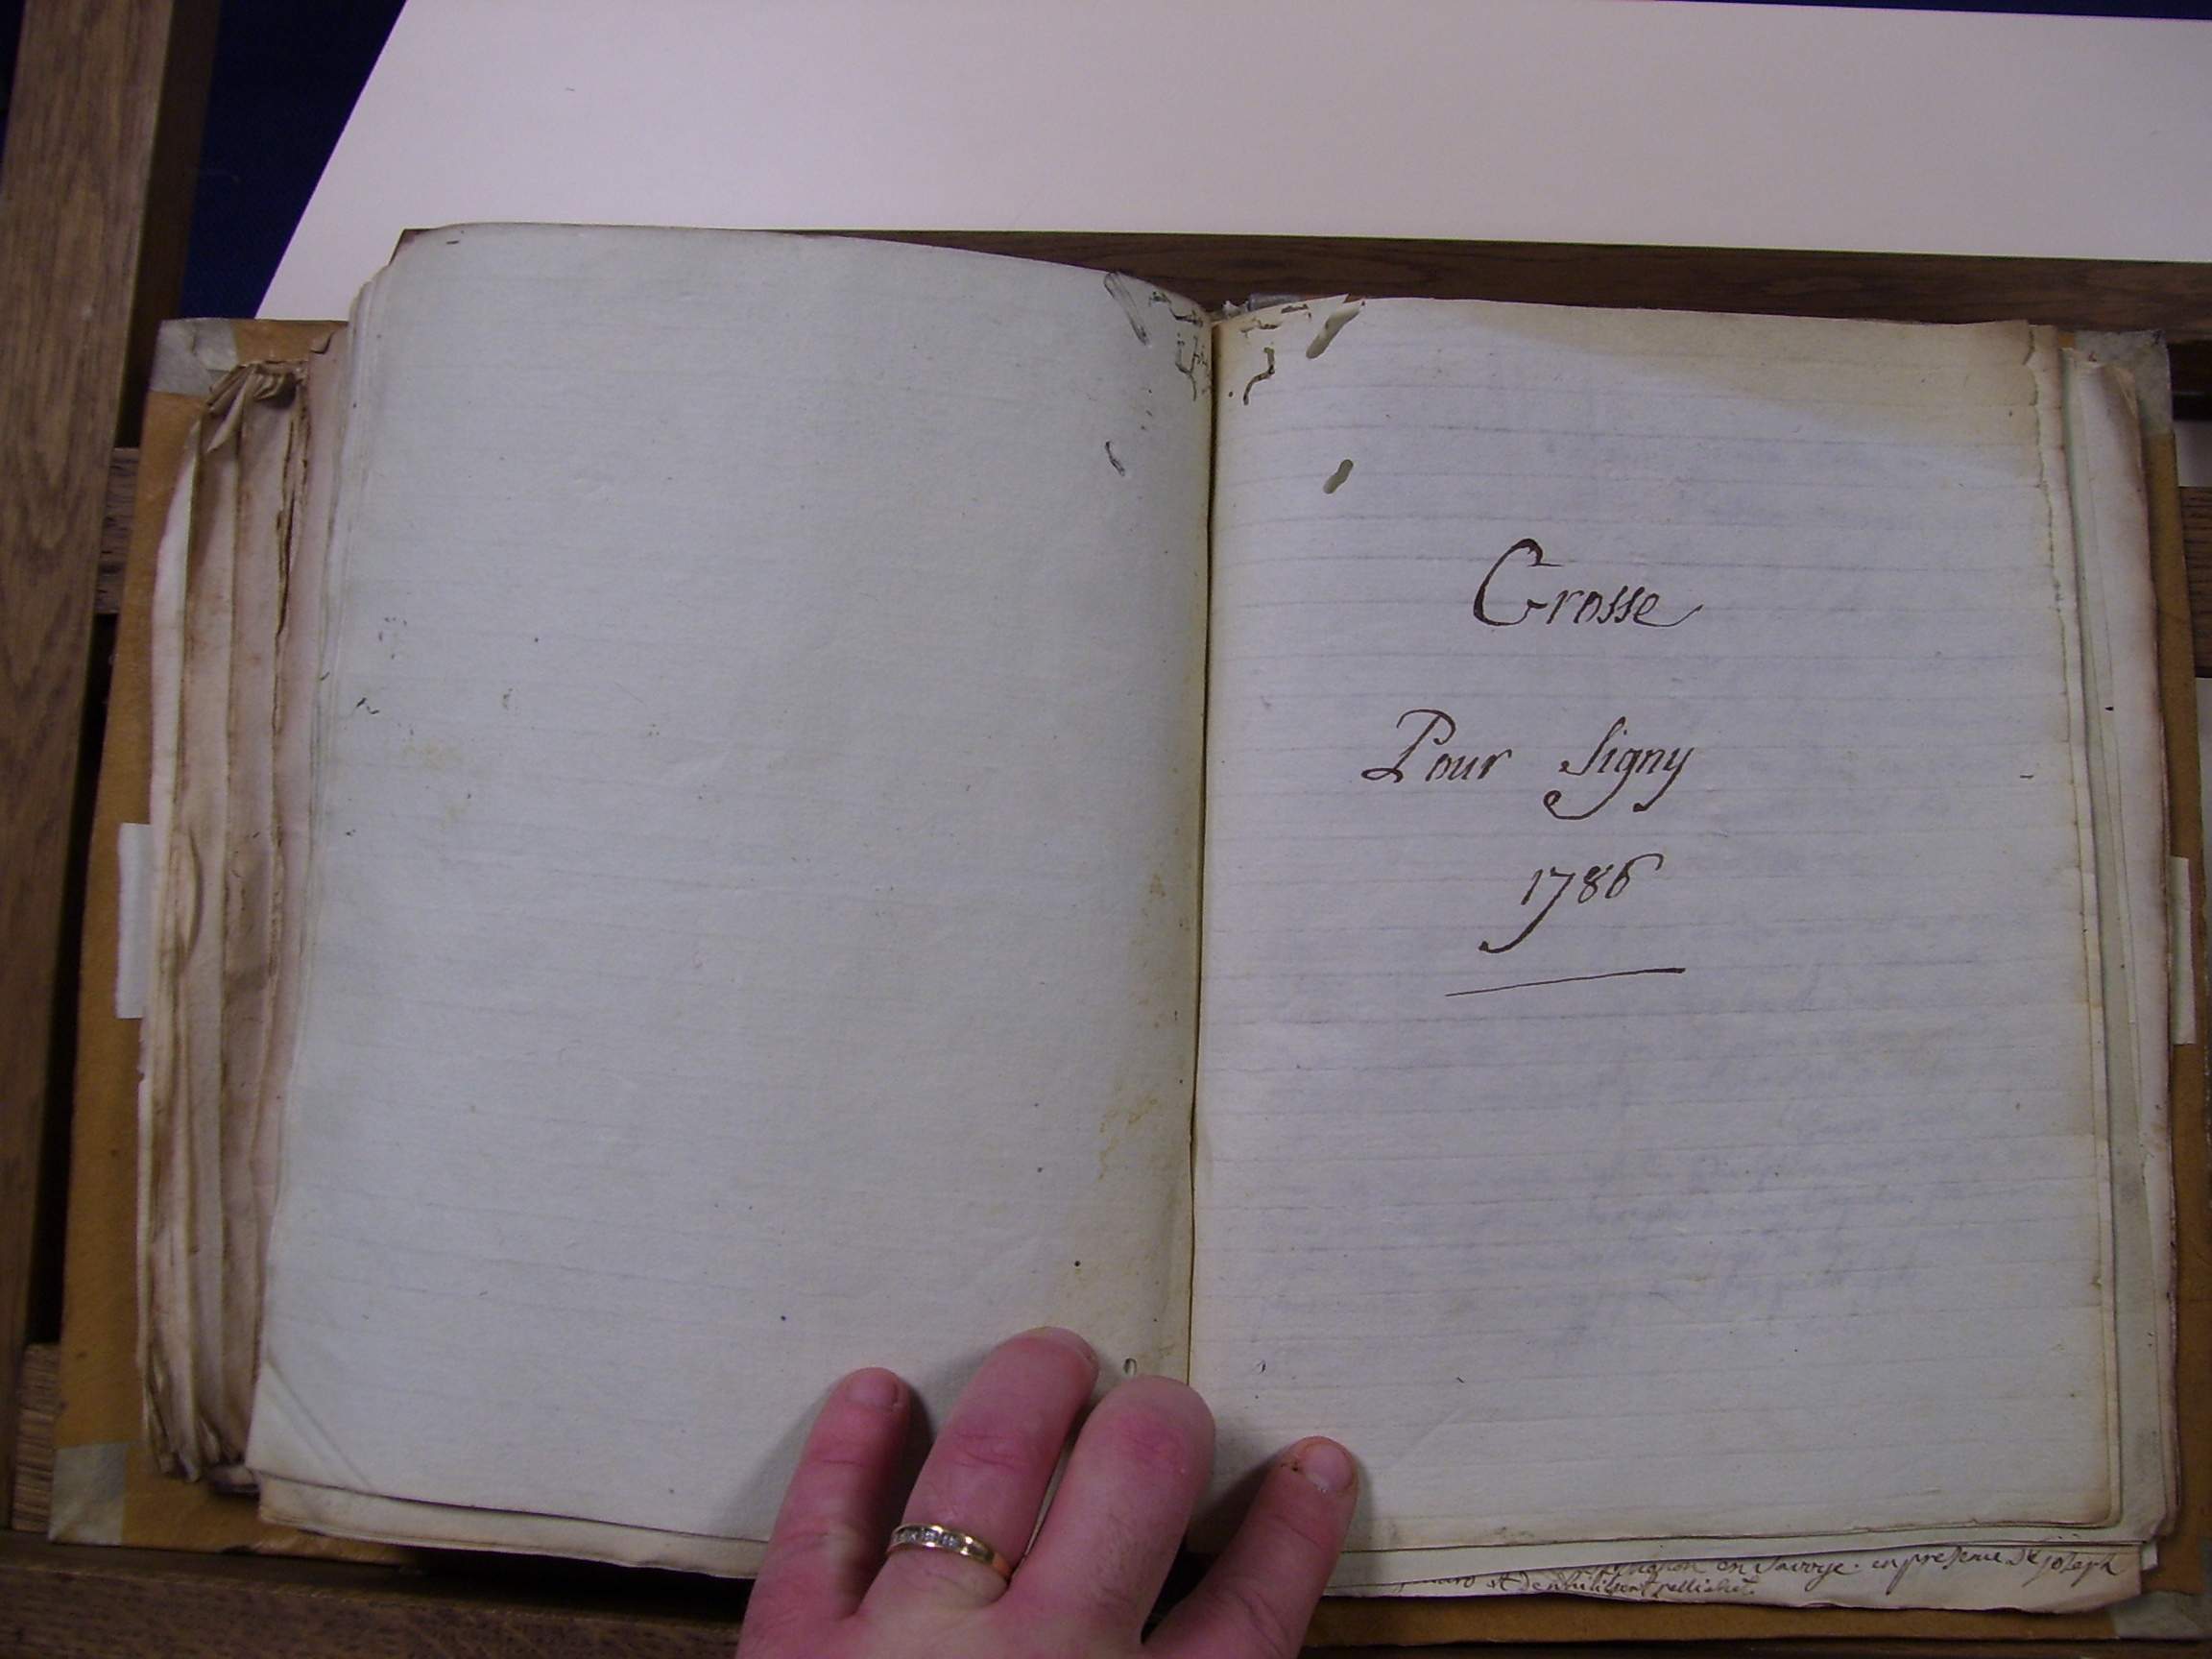 Grosse
Pour Signy
1786
en Savoye. en presence de joseph
et de philibert pellichet.